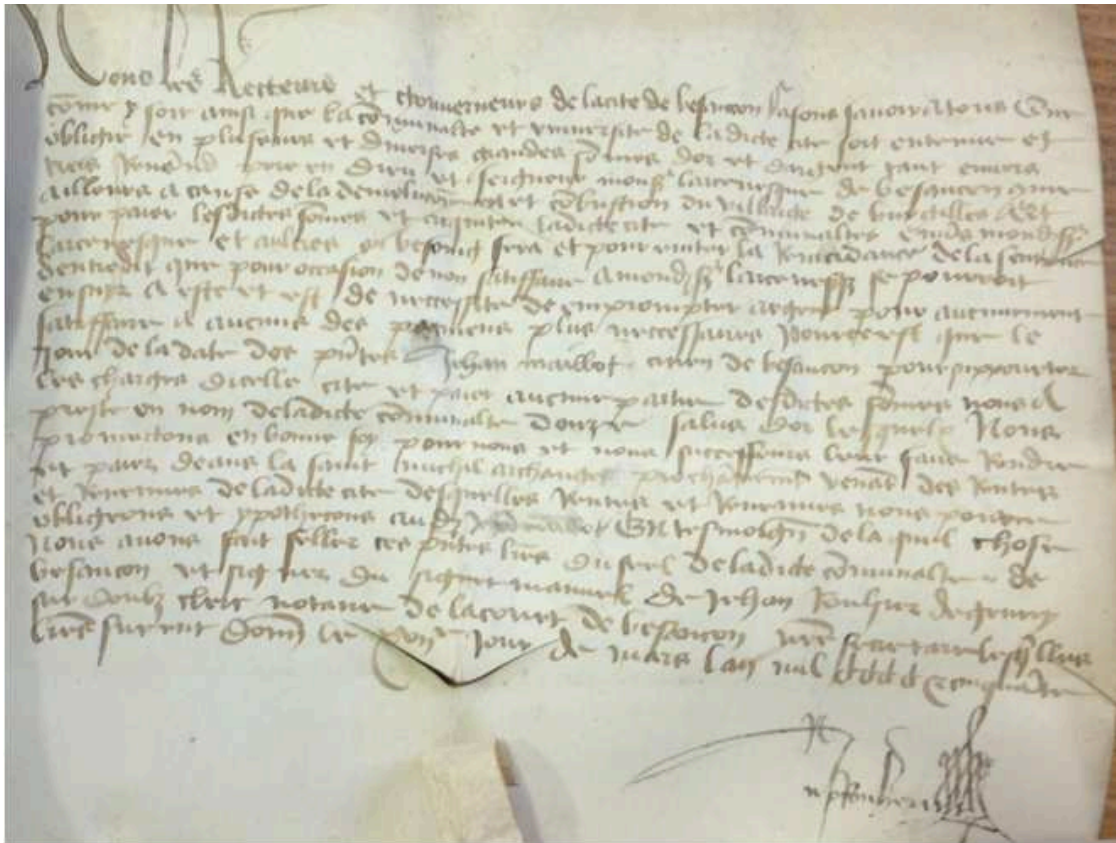 Nous les Recteurs et Gouverneurs de la cite de besancon fasons savoir a tous Que
come y soit ainsi que la comunalte et vniuersite de ladicte cite soit entenue et
obligie en pluseurs et diuerses grandes somes dor et dargent tant enuers
tres Reuerend pere en dieu et seigneur mons larceuesque de besancon come
ailleurs a cause de la demolicion et combustion du villaige de bregilles Et
pour paier lesdictes somes et aquiter ladicte cite et comunalte enuers monds
larceuesque et aultres ou besoing sera et pour euiter la Rencidance de la sentence
dentredit que pour occasion de non satiffaire a monds larceuesq se pourroit
ensuir a este et est de necessite de emprompter argent pour aucunement
satiffaire a aucuns des paiemens plus necessaires Pource est que le
jour de la date des pntes Jehan maillot citien de besancon pour supporter
les charges dicelle cite et paier aucune partie desdictes somes nous a
preste en nom de ladicte comunalte douze salus dor lesquelx Nous
promectons en bonne foy pour nous et nous successeurs leur faire Rendre
et paier deans la saint michiel archange prochainement venant des Rentes
et Reuenues de ladicte cite desquelles Rentes et Reuenues nous pour ce
obligeons et ypothecons audit En tesmoing de laquel chose
Nous auons fait seller ces pntes lres du seel de ladicte comunalte de
besancon et signer du signet manuel de Jehan
sur doubz clerc notaire de la court de besancon nre secretaire lesqlles
lres furent donn le jour de mars lan mil cccc et cinquante